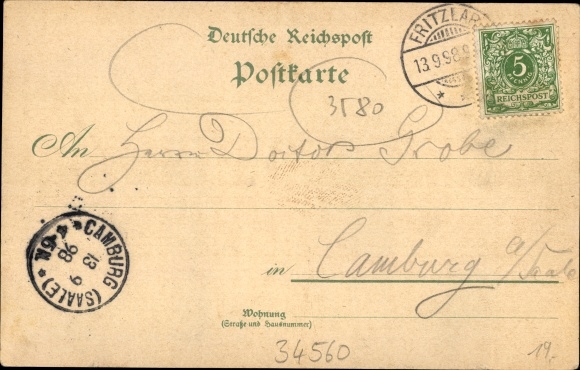 Deutsche Reichspost
Postkarte
FRITZLAR
13.9.98.
5
PFENNIG
REICHSPOST
3580
An Herrn Doctor Grobe
CAMBURG (SAALE)
13 9
98
in Camburg a/Saale
Wohnung
(Straße und Hausnummer)
34560
19.-